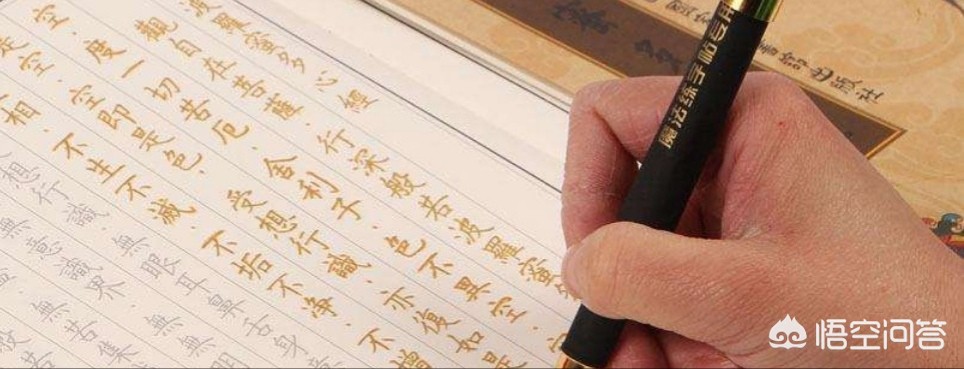 波羅蜜多心經
觀自在菩薩.行深般若波羅蜜多
空.度一切苦厄.舍利子.色不異空.空
是空.空即是色.受想行識.亦復如是
相.不生不滅.不垢不净.不增
想行識.無眼耳鼻舌身意
無意識界.無無明
無苦集
魔法练字帖专用
出版社
悟空问答